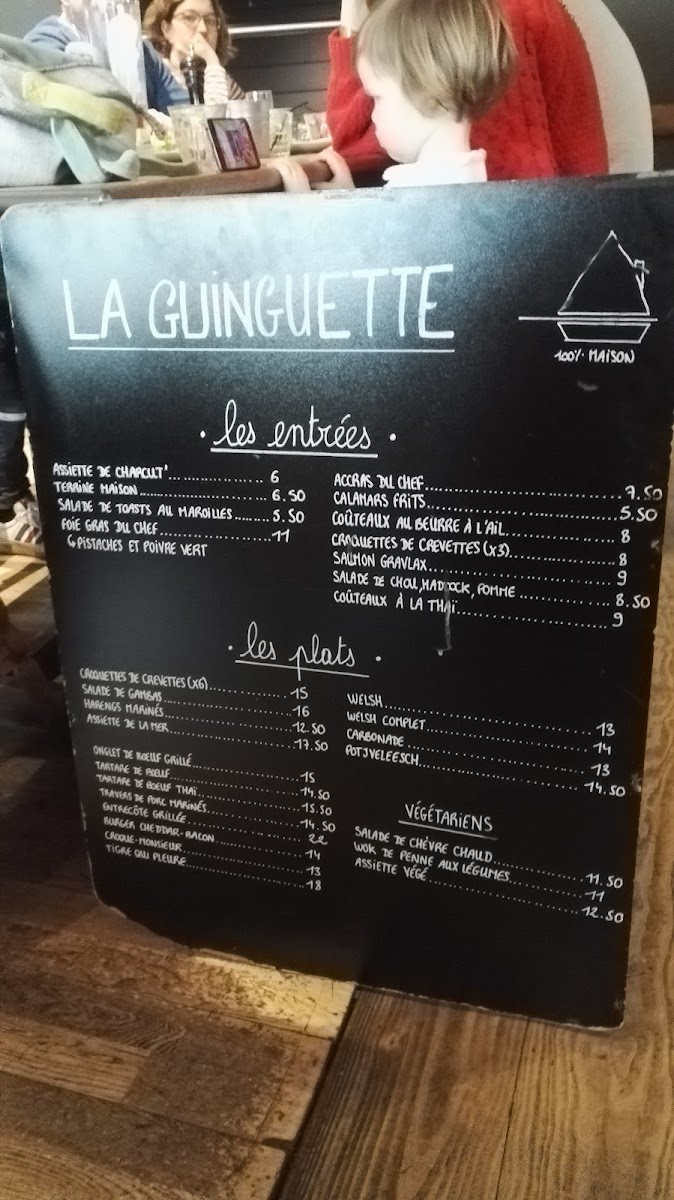 LA GUINGUETTE
100% MAISON
. les entrées .
ASSIETTE DE CHARCUT'.................. 6
TERRINE MAISON.................. 6.50
SALADE DE TOASTS AU MAROILLES.......5.50
FOIE GRAS DU CHEF..................11
↳ PISTACHES ET POIVRE VERT
ACCRAS DU CHEF..............................7.50
CALAMARS FRITS..............................5.50
COÛTEAUX AU BEURRE À L'AIL..................8
CROQUETTES DE CREVETTES (X3)..................8
SAUMON GRAVLAX..............................9
SALADE DE CHOU, HADDOCK, POMME..............8.50
COÛTEAUX À LA THAÏ..............................9
. les plats .
CROQUETTES DE CREVETTES (X6)............15
SALADE DE GAMBAS..................16
HARENGS MARINÉS..................12.50
ASSIETTE DE LA MER..................17.50
ONGLET DE BOEUF GRILLÉ..................15
TARTARE DE BOEUF..................14.50
TARTARE DE BOEUF THAÏ..................15.50
TRAVERS DE PORC MARINÉS..................14.50
ENTRECÔTE GRILLÉE..................22
BURGER CHEDDAR-BACON..................14
CROQUE-MONSIEUR..................13
TIGRE QUI PLEURE..................18
WELSH..............................13
WELSH COMPLET..............................14
CARBONADE..............................13
POTJVELEESCH..............................14.50
VÉGÉTARIENS
SALADE DE CHÈVRE CHAUD..................11.50
WOK DE PENNE AUX LÉGUMES..................11
ASSIETTE VÉGÉ..............................12.50